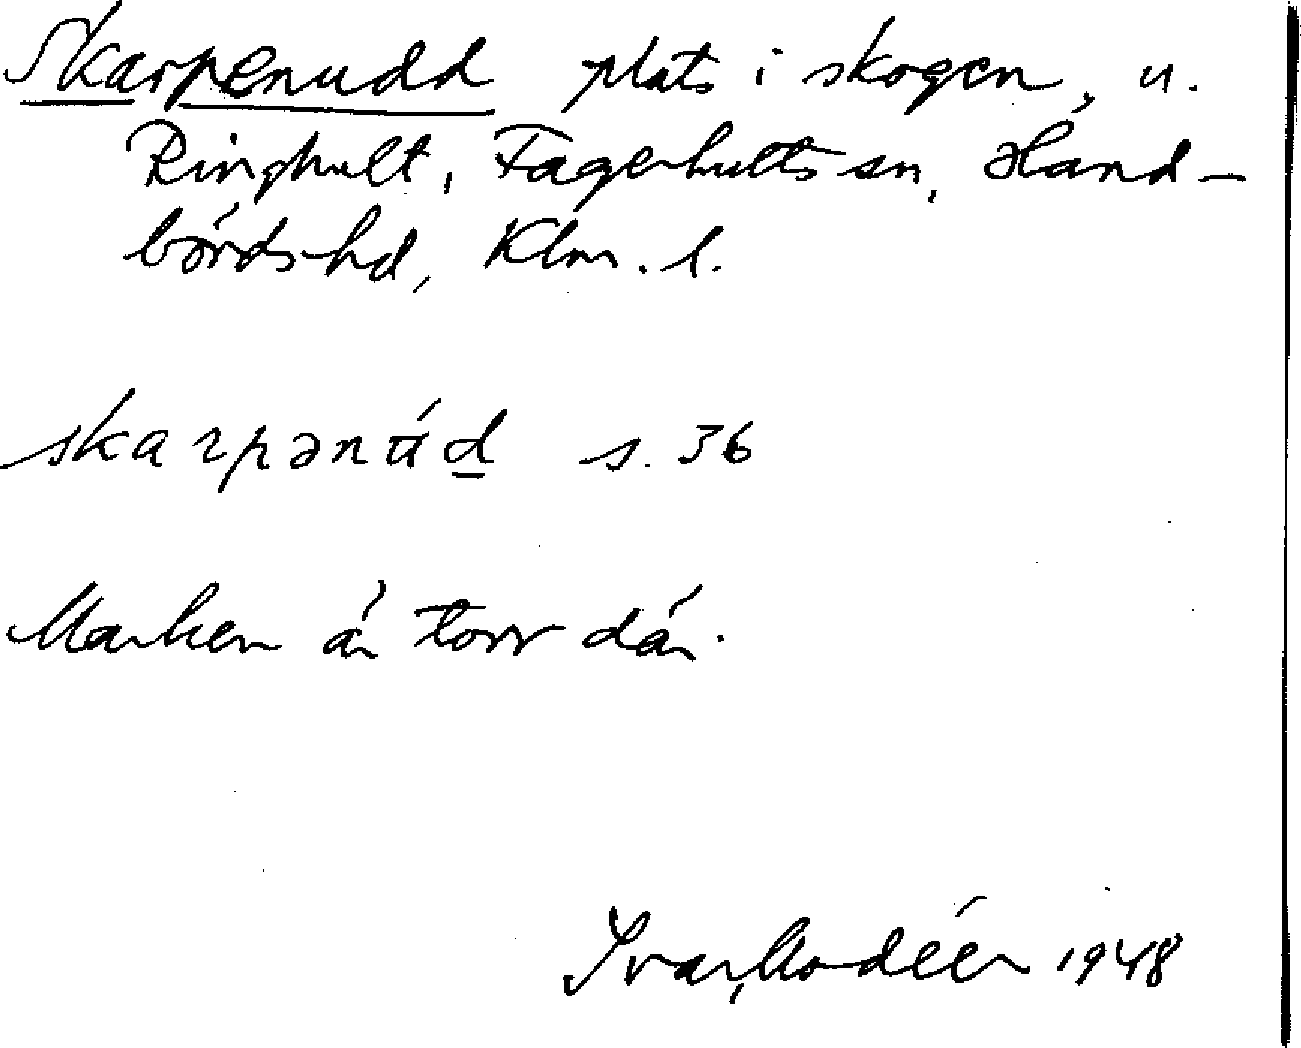 Skarpenudd plats i skogen, u.
Ringhult, Fagerhults sn, Hand-
bördshd, Klm. l.
skarpənʉ́d s. 36
Marken är torr där.
Ivar Modéer 1948